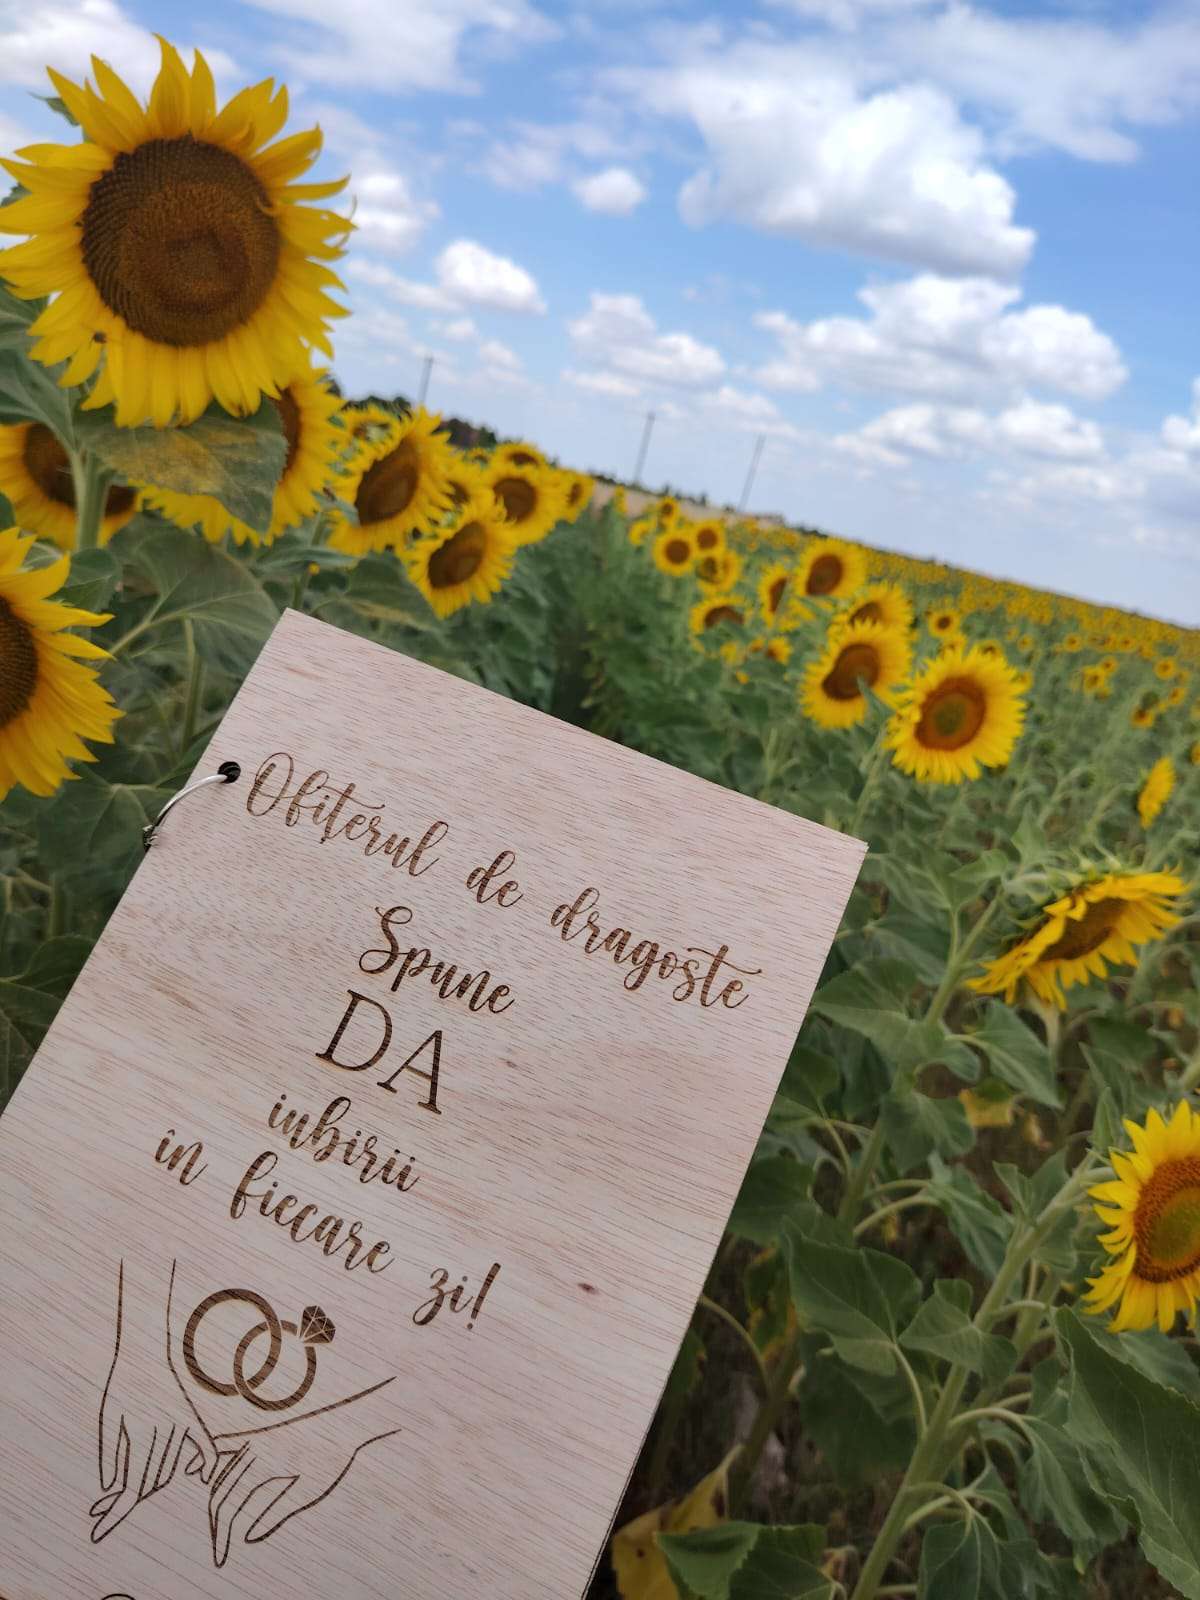 Ofițerul de dragoste
Spune
DA
iubirii
în fiecare zi!